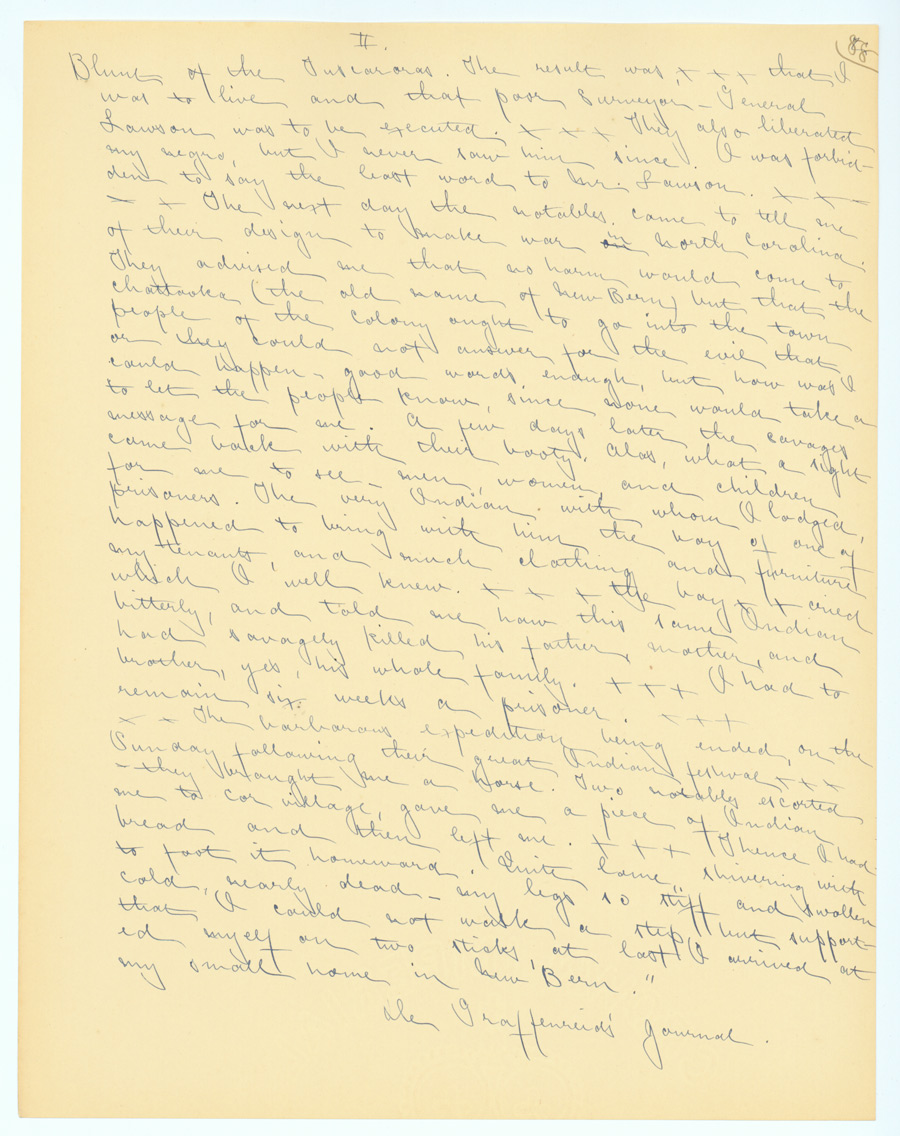 II.
88
Blunt of the Tuscaroras. The result was, x x x that I
was to live and that poor Surveyor-General
Lawson was to be executed. x x x They also liberated
my negro, but I never saw him since. I was forbid-
den to say the least word to Mr. Lawson. x x x
x x The next day the notables came to tell me
of their design to make war in North Carolina.
They advised me that no harm would come to
Chattooka (the old name of New Bern) but that the
people of the colony ought to go into the town
or they could not answer for the evil that
could happen - good words enough, but how was I
to let the people know, since none would take a
message for me. A few days later the savages
came back with their booty. Alas, what a sight
for me to see - men, women, and children
prisoners. The very Indian with whom I lodged,
happened to bring with him the boy of one of
my tenants, and much clothing and furniture
which I well knew. x x x the boy x x cried
bitterly, and told me how this same Indian
had savagely killed his father, mother, and
brother, yes, his whole family. x x x I had to
remain six weeks a prisoner. x x x
x x The barbarous expedition being ended, on the
Sunday following their great Indian festival x x x
- they brought me a horse. Two notables escorted
me to cor village, gave me a piece of Indian
bread and then left me. x x x Thence I had
to foot it homeward. Quite lame, shivering with
cold, nearly dead - my legs so stiff and swollen
that I could not walk a step, but support-
ed myself on two sticks, at last I arrived at
my small home in New Bern."
De Graffenreid's Journal.